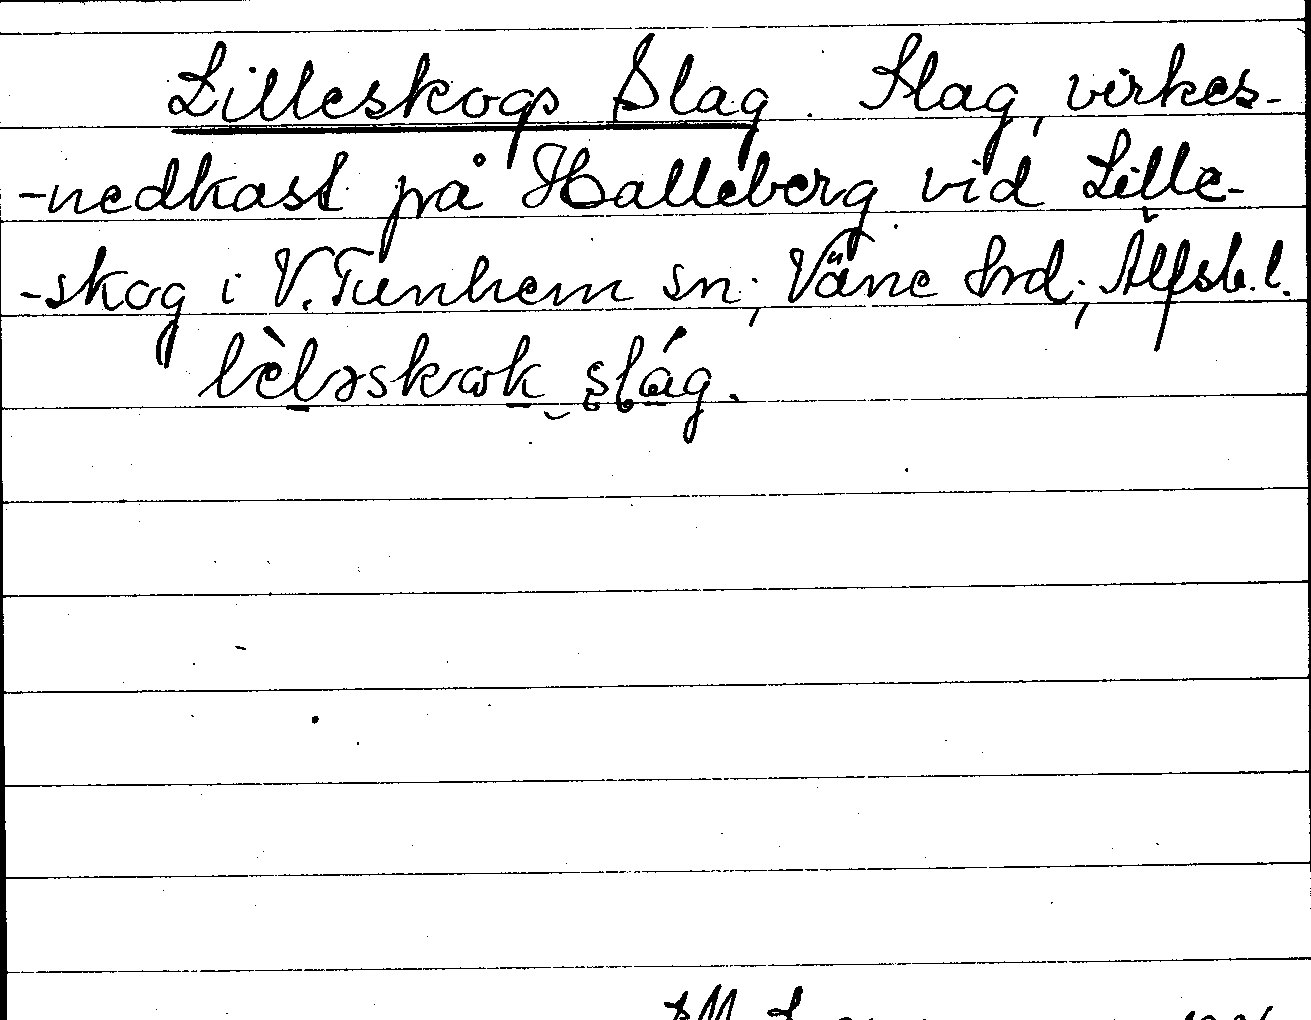 Lilleskogs Slag. Slag, virkes-
-nedkast på Halleberg vid Lille-
-skog i V. Tunhem sn; Väne hrd; Älfsb. l.
lèləskωk slág.